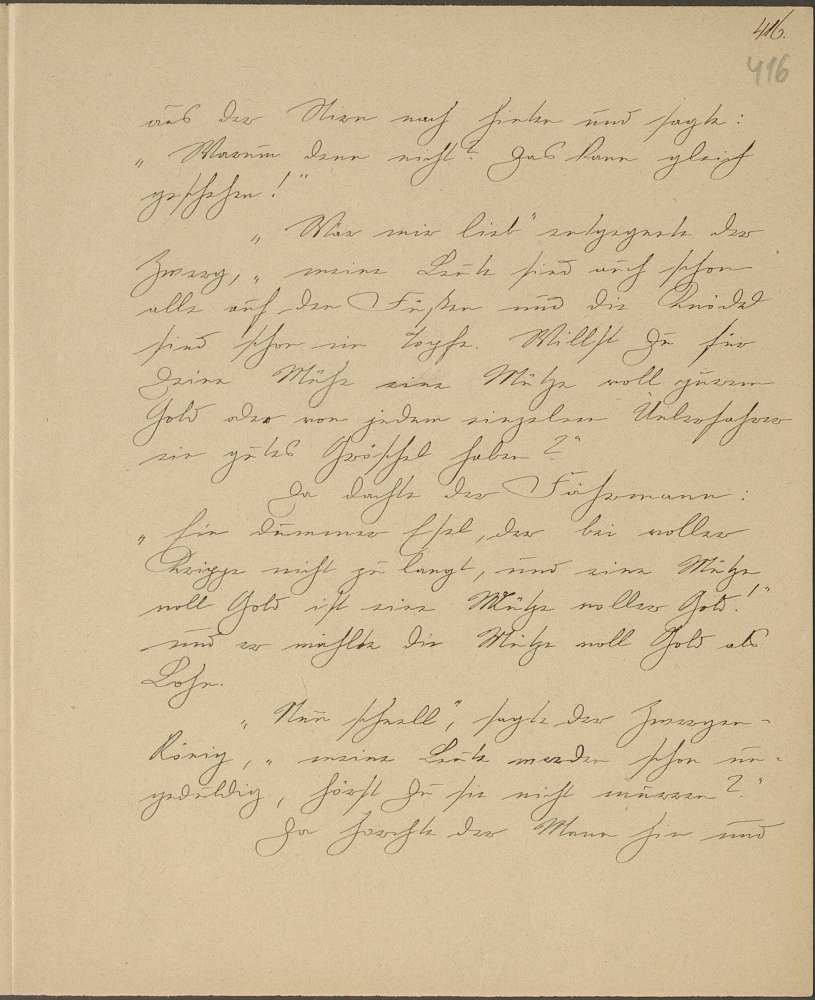 416.
416
aus der Stirn nach hinten und sagte:
„Warum denn nicht? Das kann gleich
geschehen!"
„Wär mir lieb" entgegnete der
Zwerg, „meine Leute sind auch schon
alle auf den Füßen und die Knödel
sind schon im Topfe. Willst Du für
Deine Mühe eine Mütze voll purem
Gold oder von jedem einzelnen Ueberfahrer
ein gutes Gröschel haben?"
Da dachte der Fährmann:
„Ein dummer Esel, der bei voller
Krippe nicht zu langt, und eine Mütze
voll Gold ist eine Mütze voller Gold!"
und er wählte die Mütze voll Gold als
Lohn.
„Nun schnell", sagte der Zwergen-
könig, „meine Leute werden schon un-
geduldig, hörst Du sie nicht murren?"
Da horchte der Mann hin und